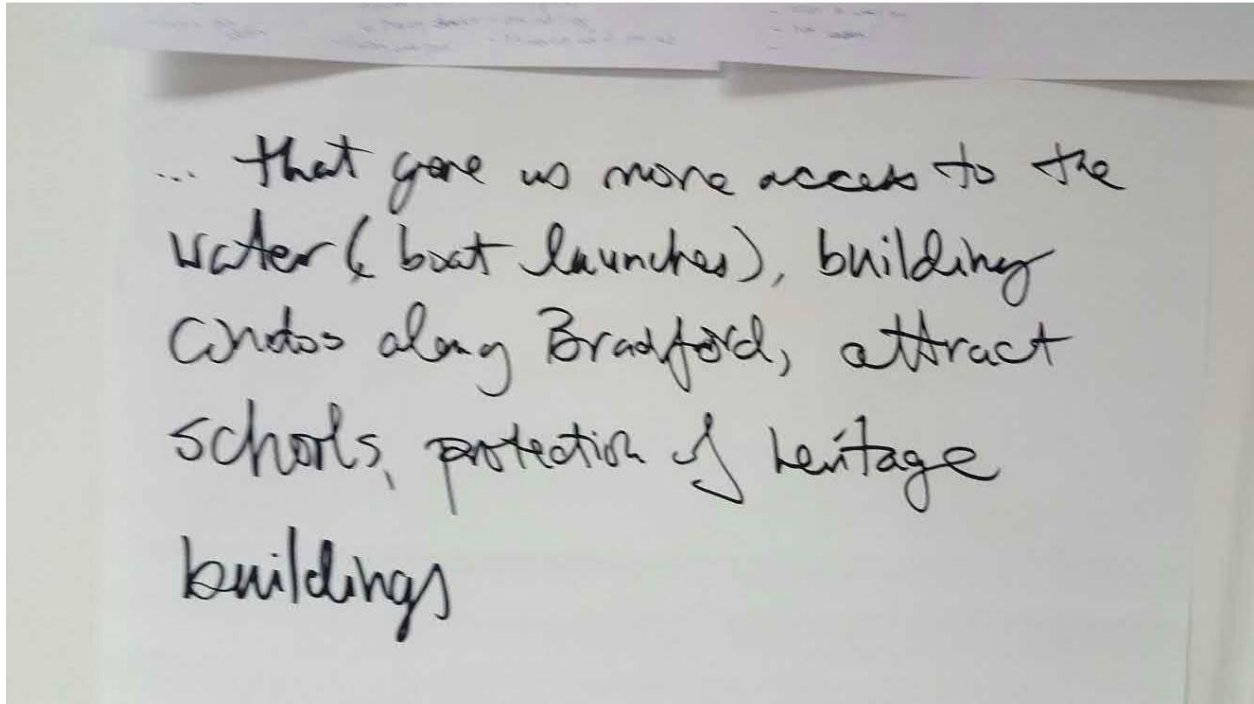 ... that gave us more access to the
water (boat launches), building
condos along Bradford, attract
schools, protection of heritage
buildings